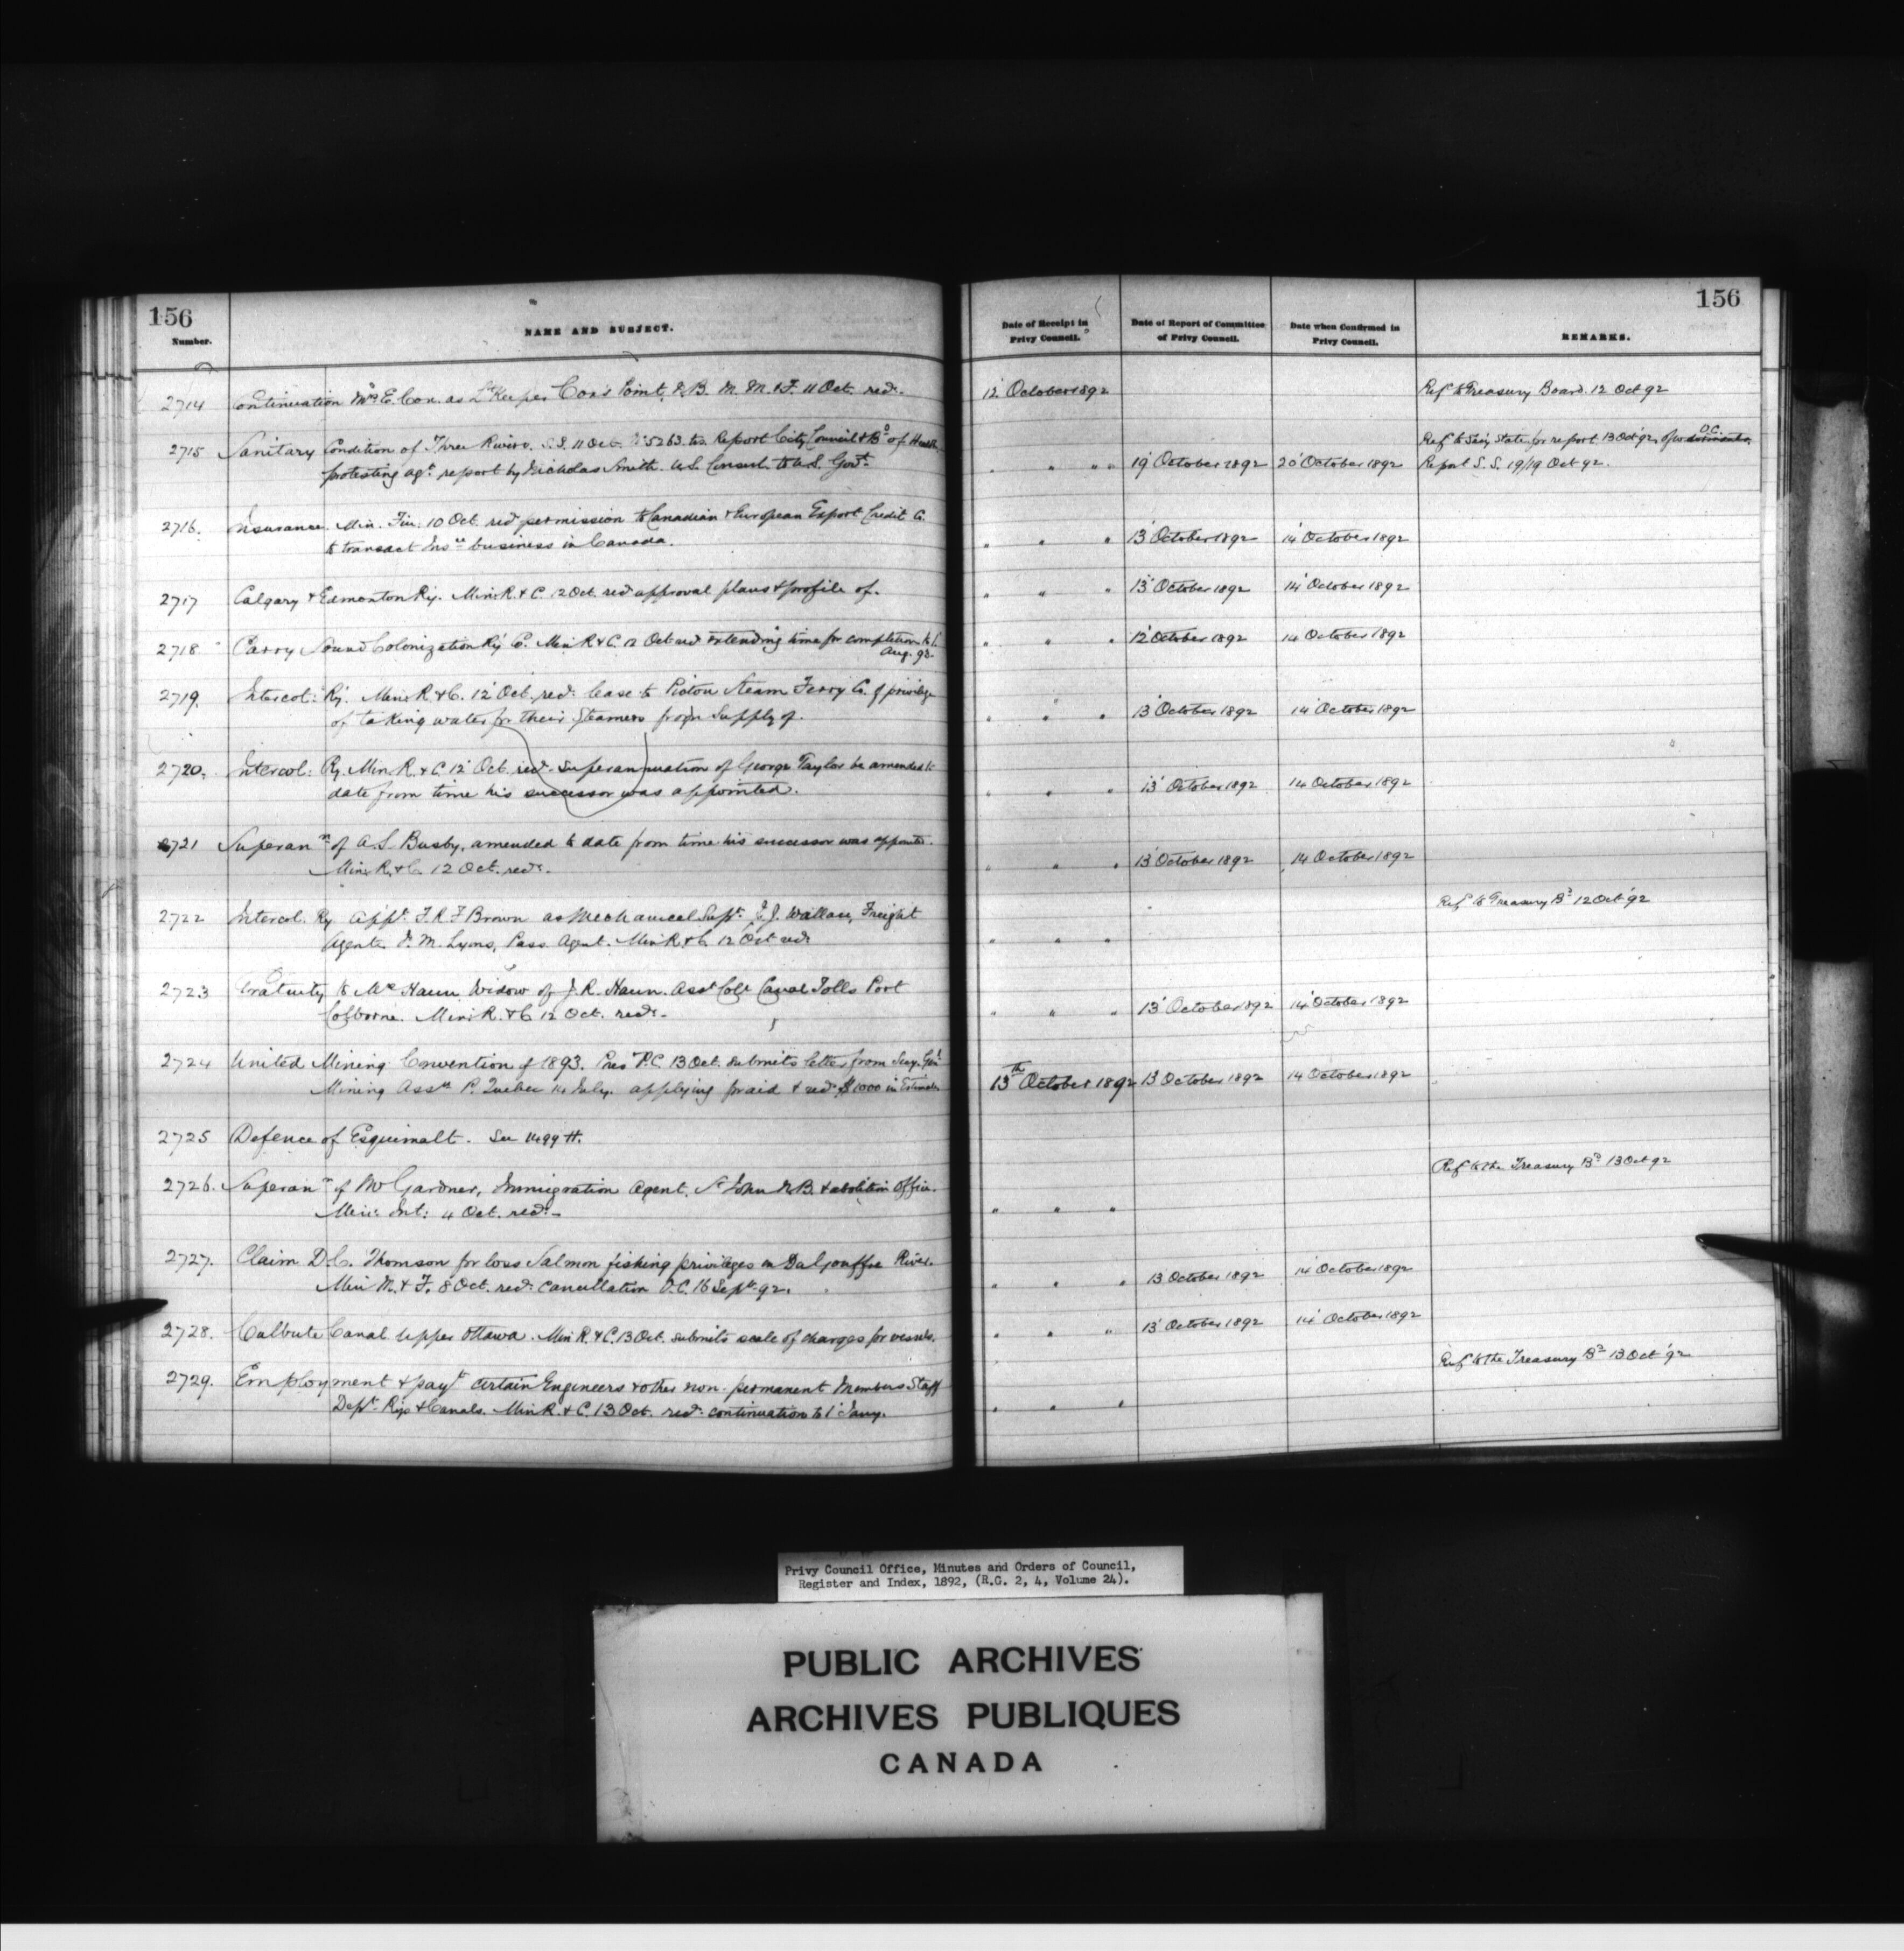 156
Number.
NAME AND SUBJECT.
Date of Receipt in Privy Council.
Date of Report of Committee of Privy Council.
Date when Confirmed in Privy Council.
REMARKS.
156
2714 Continuation Mrs E. Cox. as Lt Keeper Cox's Point, N.B. M. M. & F. 11 Oct. recd. 12 October 1892 Ref to Treasury Board. 12 Oct 92
2715 Sanitary Condition of Three Rivers. S.S. 11 Oct. No 5263. tr. Report City Council & Bd of Health Refd to Secy State for report 13 Oct '92. O.C.
protesting agt report by Nicholas Smith. U.S. Consul. to U.S. Govt. " " " " 19 October 1892 20 October 1892 Report S.S. 19/19 Oct 92.
2716. Insurance. Min. Fin. 10 Oct. recd permission to Canadian & European Export Credit Co.
to transact Insce business in Canada. " " " 13 October 1892 14 October 1892
2717 Calgary & Edmonton Ry. Min R. & C. 12 Oct. recd approval plans & profile of. " " " 13 October 1892 14 October 1892
2718 Parry Sound Colonization Ry Co. Min R & C. 12 Oct recd extending time for completion to 1
Aug. 93. " " " 12 October 1892 14 October 1892
2719. Intercol: Ry. Min R. & C. 12 Oct. recd: lease to Pictou Steam Ferry Co. of privilege
of taking water for their Steamers from Supply of. " " " 13 October 1892 14 October 1892
2720. Intercol: Ry. Min. R. & C. 12 Oct. recd. Superannuation of George Taylor be amended to
date from time his successor was appointed. " " " 13 October 1892 14 October 1892
2721 Superann of A.S. Busby, amended to date from time his successor was appointed.
Min. R. & C. 12 Oct. recd. " " " 13 October 1892 14 October 1892
2722 Intercol. Ry appt. F.R.F Brown as Mechanical Supt. J.J. Wallace, Freight Ref to Treasury Bd 12 Oct '92
Agent J. M. Lyons, Pass Agent. Min R. & C. 12 Oct recd " " "
2723 Gratuity to Mrs Haun Widow of J. R. Haun. Asst Coll Canal Tolls Port
Colborne. Min: R. & C 12 Oct. recd. " " " 13 October 1892 14 October 1892
2724 United Mining Convention of 1893. Pres P.C. 13 Oct. submits letter from Secy. Genl
Mining Assn P. Quebec 14 July. applying for aid & recd $1000 in Estimates 13th October 1892 13 October 1892 14 October 1892
2725 Defence of Esquimalt. See 1499 H.
2726. Superann of Mr Gardner, Immigration Agent. St John N.B. & abolition Office. Ref to the Treasury Bd 13 Oct 92
Min: Int: 11 Oct. recd. " " "
2727. Claim D.C. Thomson for loss Salmon fishing privileges in Du Gouffre River.
Min M. & F. 8 Oct. recd: cancellation O.C. 16 Sept. 92. " " " 13 October 1892 14 October 1892
2728. Culbute Canal Upper Ottawa. Min R. & C. 13 Oct. submits scale of charges for vessels. " " " 13 October 1892 14 October 1892
2729. Employment & payt certain Engineers & other non-permanent Members Staff Ref to the Treasury Bd 13 Oct '92
Dept Rys & Canals. Min R. & C. 13 Oct. recd: continuation to 1 Jany. " " "
Privy Council Office, Minutes and Orders of Council,
Register and Index, 1892, (R.G. 2, 4, Volume 24).
PUBLIC ARCHIVES
ARCHIVES PUBLIQUES
CANADA